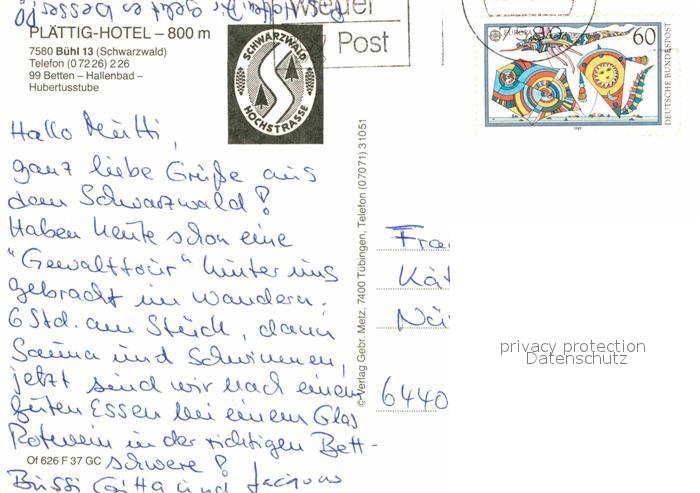 P.S. Hoffentlich geht es besser!
weller
Post
PLÄTTIG-HOTEL – 800 m
7580 Bühl 13 (Schwarzwald)
Telefon (0 72 26) 2 26
99 Betten – Hallenbad –
Hubertusstube
SCHWARZWALD
HOCHSTRASSE
EUROPA
60
DEUTSCHE BUNDESPOST
1989
Hallo Mutti,
ganz liebe Grüße aus
dem Schwarzwald!
Haben heute schon eine
"Gewalttour" hinter uns
gebracht im Wandern:
6 Std. am Stück, dann
Sauna und Schwimmen,
jetzt sind wir nach einem
guten Essen bei einem Glas
Rotwein in der richtigen Bett-
schwere!
Bussi Gitta und Jacques
Of 626 F 37 GC
© Verlag Gebr. Metz, 7400 Tübingen, Telefon (0 70 71) 3 10 51
Fra
Kät
Nü
6440
privacy protection
Datenschutz